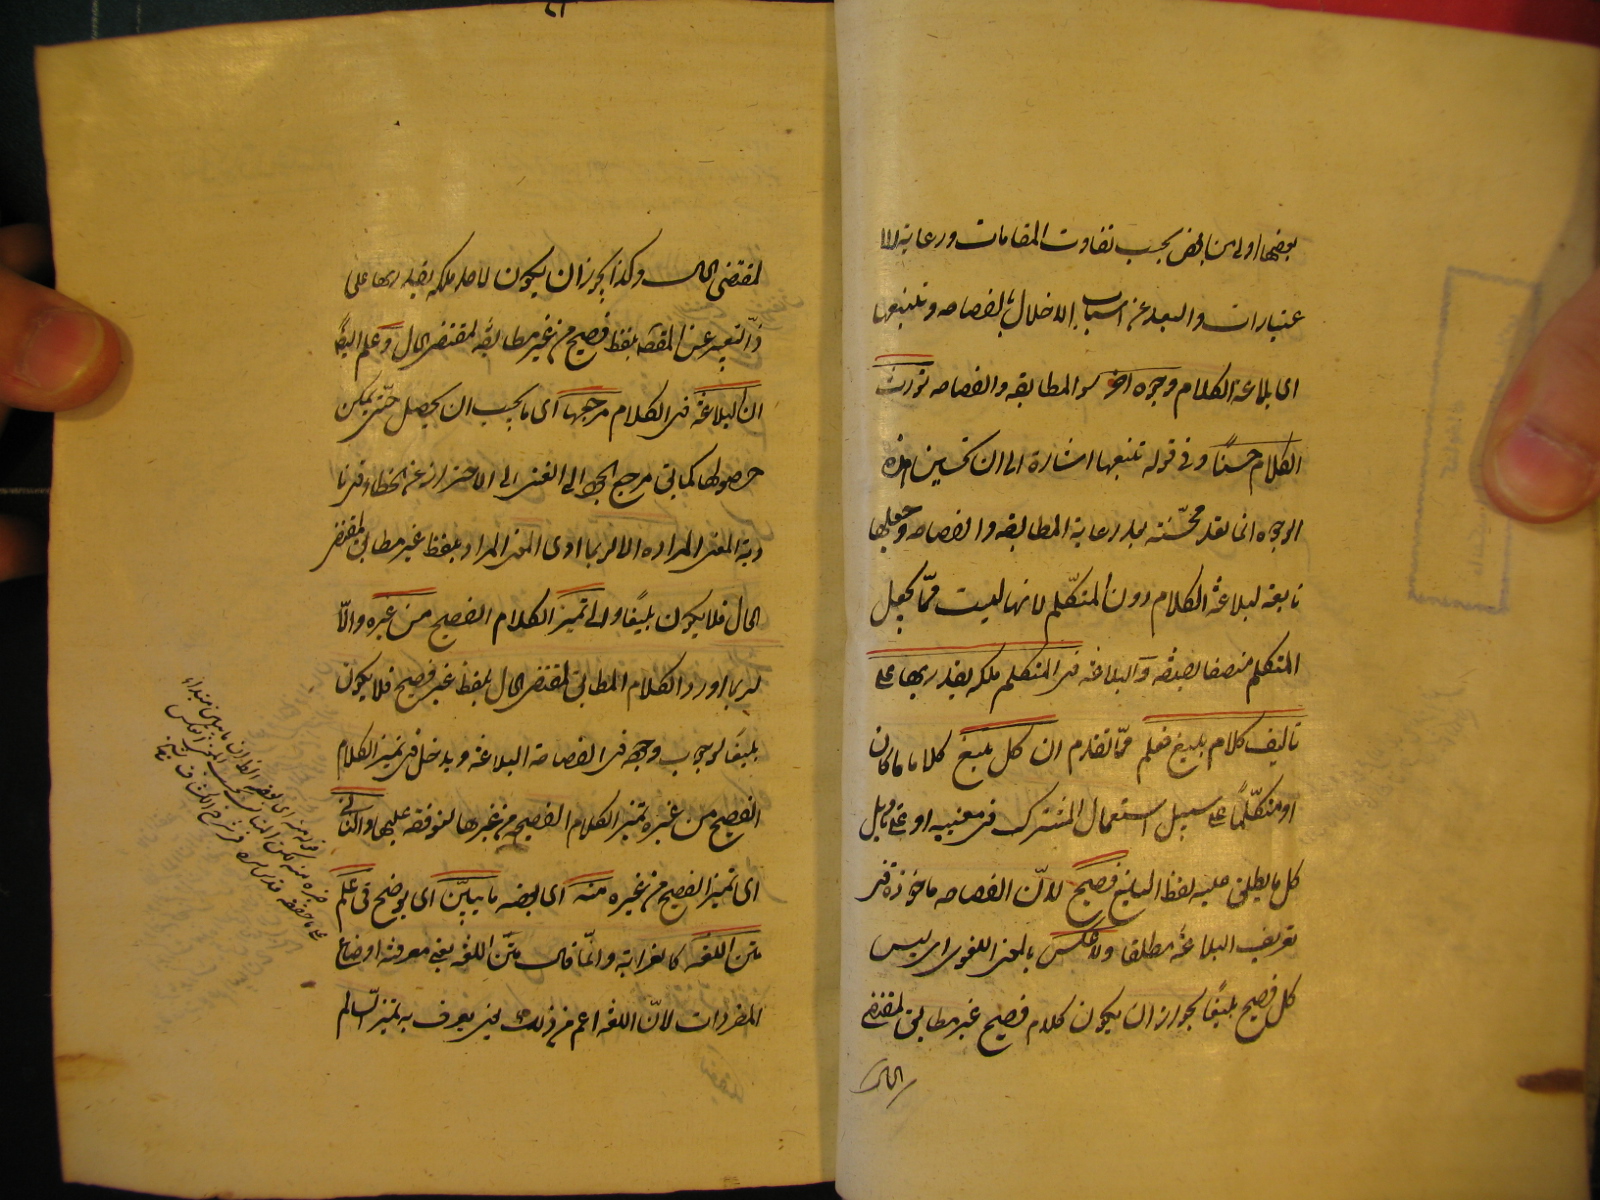 بعضها اولى من بعض بحسب تفاوت المقامات ورعاية الا
عتبارات والبعد عن اسباب الاخلال بالفصاحة وتتبعها
اى بلاغة الكلام وجوه اخر سو المطابقه والفصاحه تورث
الكلام حسنًا وفى قوله تتبعها اشارة الى ان تحسين هذه
الوجوه انما تعد محسّنة بعد رعاية المطابقه والفصاحه وجعلها
تابعه لبلاغة الكلام دون المتكلّم لانها ليست ممّا يجعل
المتكلم متصفا بصفة والبلاغه فى المتكلم ملكه يقتدر بها على
تاليف كلام بليغ فعلم ممّا تقدم ان كل بليغ كلاما كان
او متكلّمًا على سبيل استعمال المشترك فى معنييه او على تاويل
كل ما يطلق عليه لفظ البليغ فصيح لانّ الفصاحه ماخوذة فى
تعريف البلاغة مطلقا ولا عكس بالمعنى اللغوى اى ليس
كل فصيح بليغًا لجواز ان يكون كلام فصيح غير مطابق لمقتضى
الحال
لمقتضى الحال وكذا يجوز ان يكون لاحد ملكه يقتدر بها على
التعبير عن المقصود بلفظ فصيح من غير مطابقة لمقتضى الحال وعلم ايضًا
ان البلاغة فى الكلام مرجعها اى ما يجب ان يحصل حتى يمكن
حصولها كما يق مرجع الجود الى الغنى الى الاحتراز عن الخطاء فى تا
دية المعنى المراد والا لربما ادى المعنى المراد بلفظ غير مطابق لمقتضى
الحال فلا يكون بليغًا والى تميز الكلام الفصيح من غيره والّا
لربما اورد الكلام المطابق لمقتضى الحال بلفظ غير فصيح فلا يكون
بليغًا لوجوب وجود الفصاحة فى البلاغه ويدخل فى تميز الكلام
الفصيح من غيره تميز الكلام الفصيحه من غيرها لتوقفه عليها والثانى
اى تميز الفصيح من غيره منه اى بعضه ما يبيّن اى يوضح فى علم
متن اللغه كالغرابة وانّما قال متن اللغه يعنى معرفة اوضاع
المفردات لانّ اللغه اعم من ذلك يعنى يعرف به تميز السالم